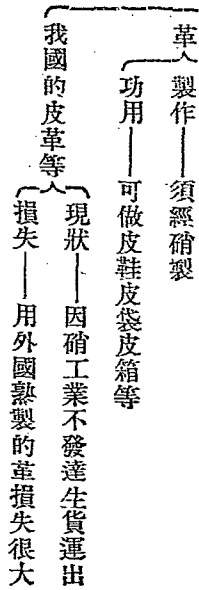 革
製作——須經硝製
功用——可做皮鞋皮袋皮箱等
我國的皮革等
現狀——因硝工業不發達生貨運出
損失——用外國熟製的革損失很大